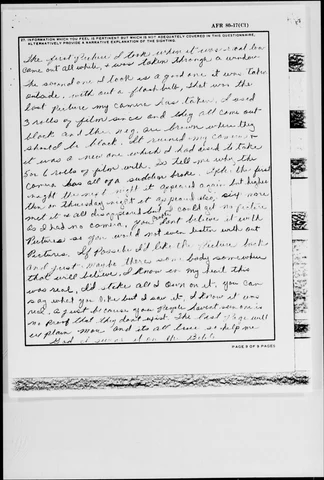 AFR 80-17(C1)
27. INFORMATION WHICH YOU FEEL IS PERTINENT BUT WHICH IS NOT ADEQUATELY COVERED IN THIS QUESTIONNAIRE. ALTERNATIVELY PROVIDE A NARRATIVE EXPLANATION OF THE SIGHTING.
The first picture I took, when it was real low
come out all white, & was taken through a window
The second one I took is a good one it was taken
outside, with out a flash bulb, that was the
last picture my camera has taken. I used
3 rolls of film since and they all come out
black and the neg. are brown where they
should be black. It ruined my camera &
it was a new one which I had used to take
5 or 6 rolls of film with. So tell me why this
camera has all of a sudden broke.
night the next night it appeared again but higher
then on Thursday night it appeared also, six more
met it as all disappeared but I could get no picture
as I had no camera, you don't believe it with
Pictures so you would not even listen with out
Pictures. If Possible I'd like the Picture back
and just maybe there's some body somewhere
that will believe, I know in my heart this
was real, I'd stake all I own on it, you can
say what you like but I saw it, I know it was
real, & just because you people havent seen one is
no Proof that they don't exist. The last Page will
explain more and its all true so help me
God I swear it on the Bible
PAGE 5 OF 5 PAGES